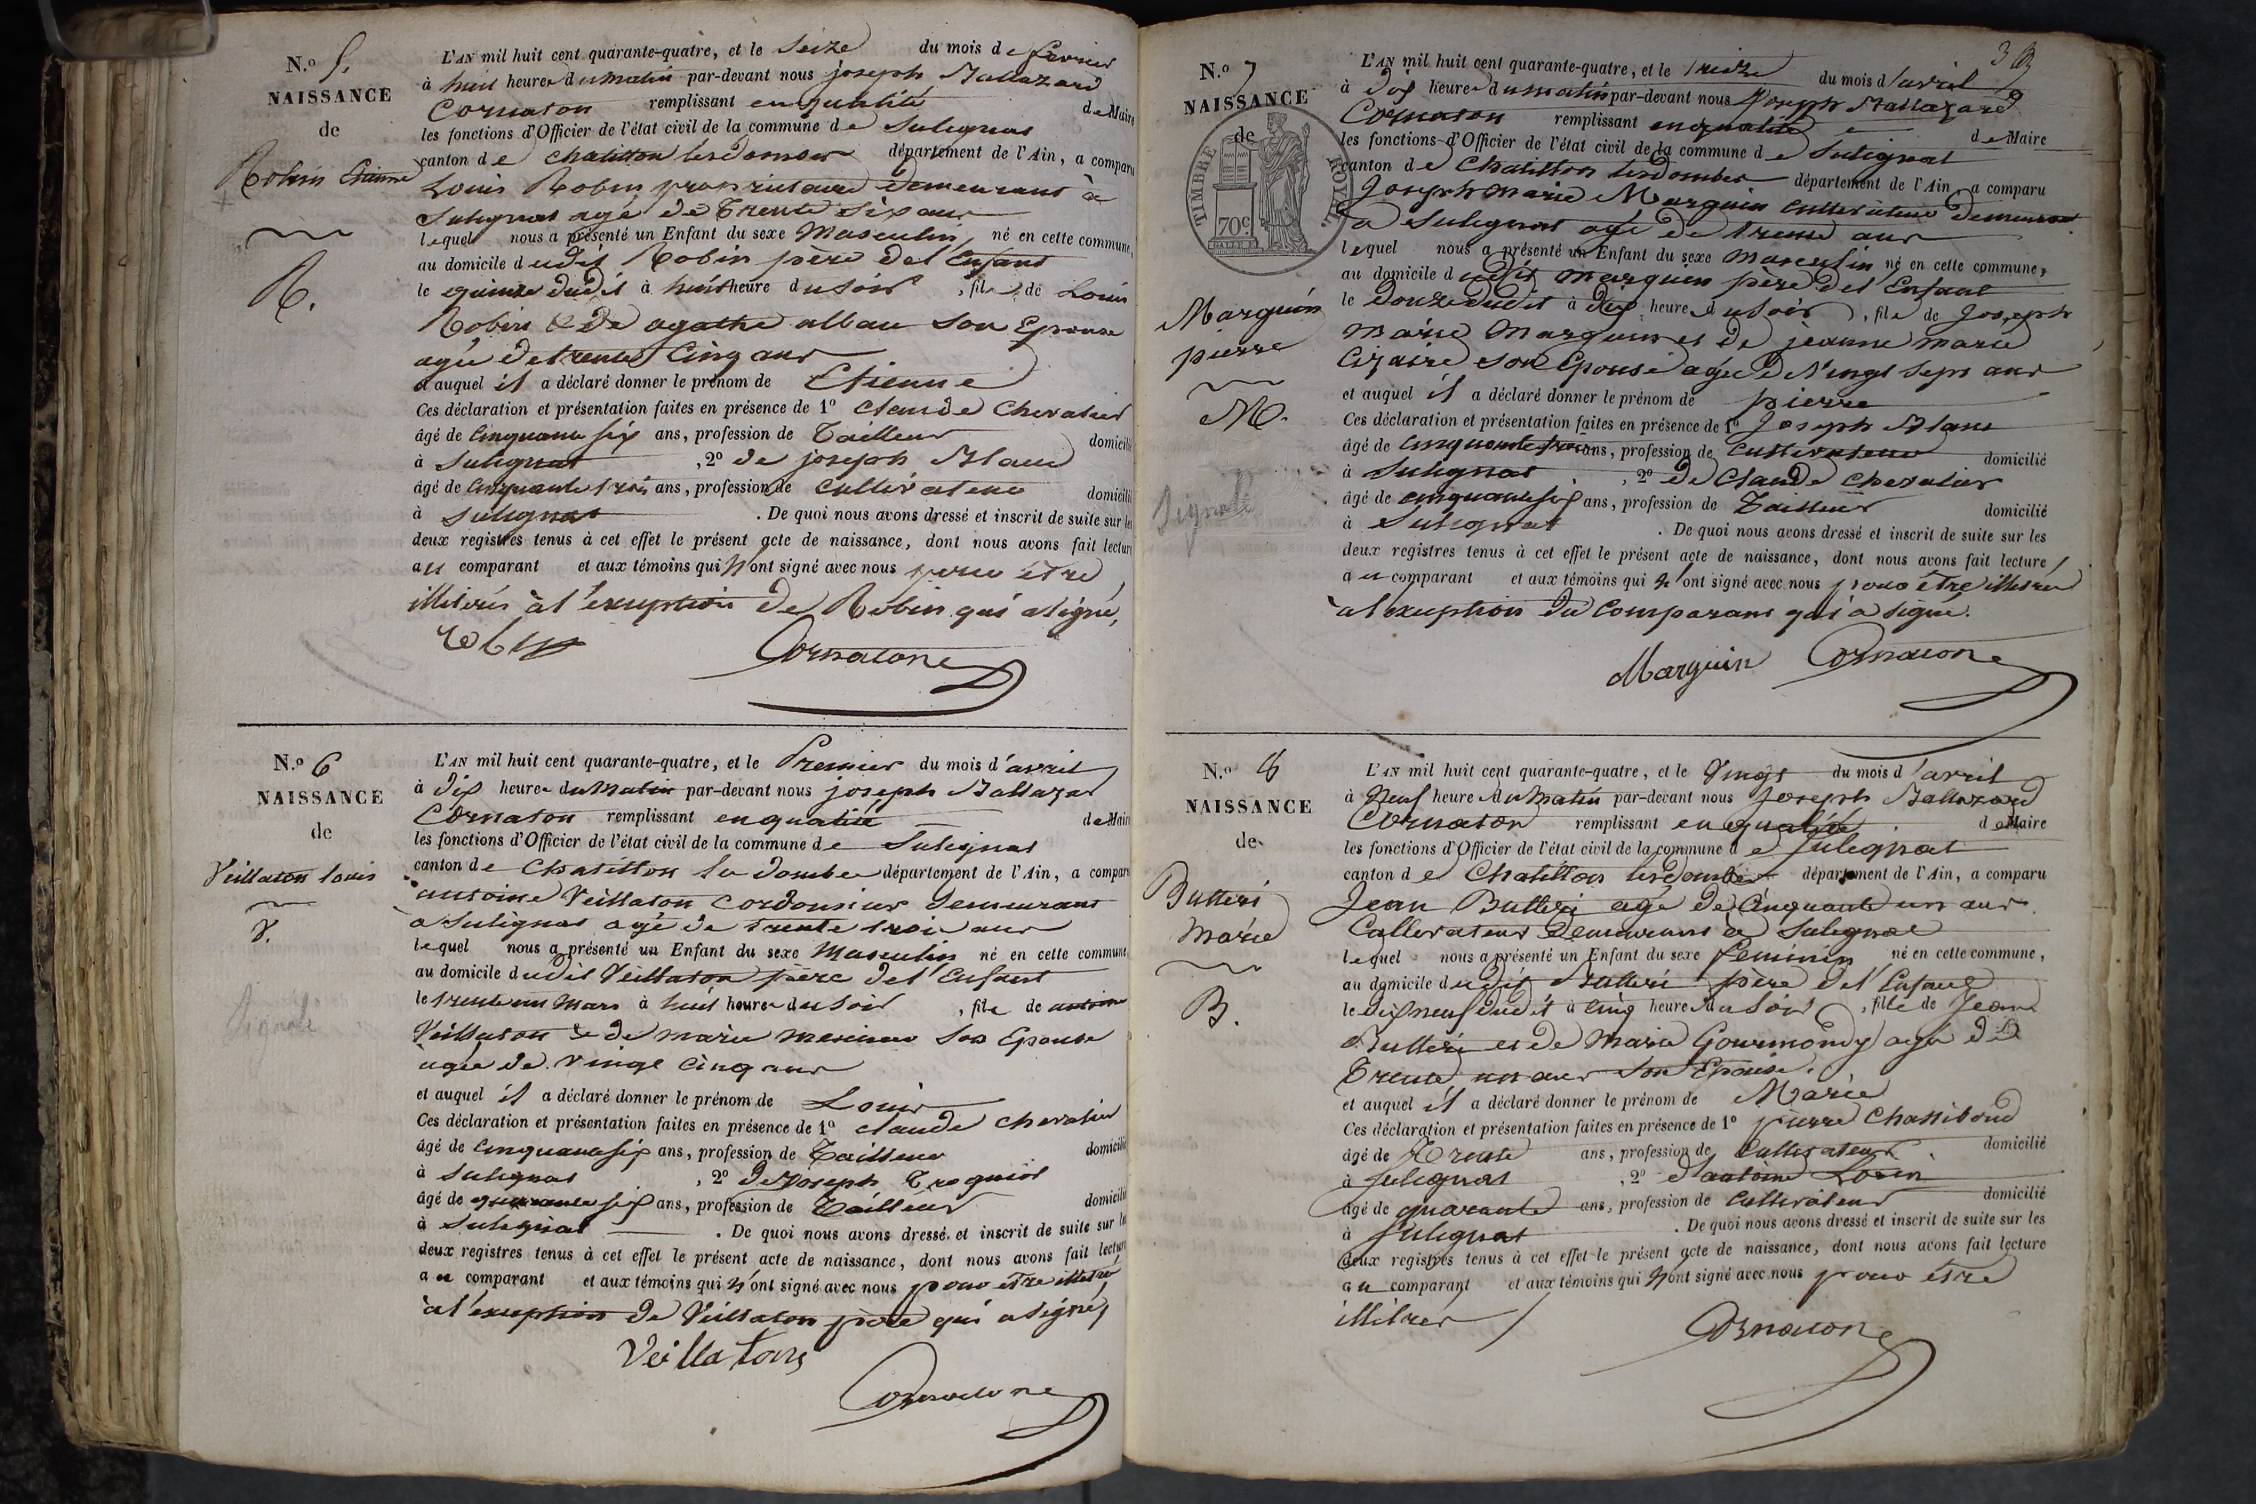 N.º 5.
NAISSANCE
de
Robin Etienne
R.
L'AN mil huit cent quarante-quatre, et le seize du mois de fevrier
à huit heures du matin par-devant nous joseph Baltazard
Cornaton remplissant en qualité de Maire
les fonctions d'Officier de l'état civil de la commune de Sulignat
canton de Chatillon lesdombes département de l'Ain, a comparu
Louis Robin propriétaire demeurant à
Sulignat agé de trente six ans
lequel nous a présenté un Enfant du sexe Masculin, né en cette commune,
au domicile dudit Robin père del'Enfant
le quinze dudit à huit heure du soir, fils de Louis
Robin & de agathe alban son Epouse
agée de trente Cinq ans
et auquel il a déclaré donner le prénom de Etienne
Ces déclaration et présentation faites en présence de 1º Claude Chevalier
âgé de Cinquante six ans, profession de Tailleur domicilié
à Sulignat, 2º de joseph Blanc
âgé de Cinquante trois ans, profession de Cultivateur domicilié
à Sulignat. De quoi nous avons dressé et inscrit de suite sur les
deux registres tenus à cet effet le présent acte de naissance, dont nous avons fait lecture
au comparant et aux témoins qui n'ont signé avec nous pour être
illitrés à l'exception de Robin qui a signé,
robin Cornaton
N.º 6
NAISSANCE
de
Veillaton louis
V.
Signalé
L'AN mil huit cent quarante-quatre, et le Premier du mois d'avril
à dix heures du Matin par-devant nous joseph Baltazar
Cornaton remplissant en qualité de Maire
les fonctions d'Officier de l'état civil de la commune de Sulignat
canton de Chatillon les dombes département de l'Ain, a comparu
antoine Veillaton Cordonnier demeurant
a Sulignat agé de trente trois ans
lequel nous a présenté un Enfant du sexe Masculin né en cette commune,
au domicile dudit Veillaton père del'Enfant
le trente un Mars à huit heures du soir, fils de antoine
Veillaton & de marie son Epouse
agée de vingt Cinq ans
et auquel il a déclaré donner le prénom de Louis
Ces déclaration et présentation faites en présence de 1º Claude Chevalier
âgé de Cinquante six ans, profession de Tailleur domicilié
à Sulignat, 2º de Joseph
âgé de quarante six ans, profession de Tailleur domicilié
à Sulignat. De quoi nous avons dressé et inscrit de suite sur les
deux registres tenus à cet effet le présent acte de naissance, dont nous avons fait lecture
au comparant et aux témoins qui n'ont signé avec nous pour être illitré
à l'exception de Veillaton père qui a signé,
Veillaton
Cornaton
3
N.º 7
NAISSANCE
de
TIMBRE ROYAL
70c
Marguin
pierre
M.
Signalé
L'AN mil huit cent quarante-quatre, et le treize du mois d'avril
à dix heures du matin par-devant nous Joseph Baltazard
Cornaton remplissant en qualité de Maire
les fonctions d'Officier de l'état civil de la commune de Sulignat
canton de Chatillon lesdombes département de l'Ain, a comparu
Joseph Marie Marguin Cultivateur demeurant
a Sulignat agé de trente ans
lequel nous a présenté un Enfant du sexe Masculin né en cette commune,
au domicile dudit Marguin père del'Enfant
le douze dudit à dix heure du soir, fils de Joseph
Marie Marguin et de jeanne marie
son Epouse agée de Vingt sept ans
et auquel il a déclaré donner le prénom de pierre
Ces déclaration et présentation faites en présence de 1º Joseph Blanc
âgé de Cinquante trois ans, profession de Cultivateur domicilié
à Sulignat, 2º de Claude Chevalier
âgé de cinquante six ans, profession de Tailleur domicilié
à Sulignat. De quoi nous avons dressé et inscrit de suite sur les
deux registres tenus à cet effet le présent acte de naissance, dont nous avons fait lecture
au comparant et aux témoins qui n'ont signé avec nous pour être illitrés
à l'exception du Comparant qui a signé.
Marguin Cornaton
N.º 8
NAISSANCE
de
Butteri
Marie
B.
L'AN mil huit cent quarante-quatre, et le Vingt du mois d'avril
à Neuf heures du Matin par-devant nous Joseph Baltazard
Cornaton remplissant en qualité de Maire
les fonctions d'Officier de l'état civil de la commune de Sulignat
canton de Chatillon lesdombes département de l'Ain, a comparu
Jean Butteri agé de Cinquante un ans
Cultivateur Demeurant à Sulignat
lequel nous a présenté un Enfant du sexe feminin né en cette commune,
au domicile dudit Butteri père del'Enfant
le dix neuf dudit à Cinq heures du soir, fille de Jean
Butteri et de Marie Gourmond agé de
Trente un ans son Epouse.
et auquel il a déclaré donner le prénom de Marie
Ces déclaration et présentation faites en présence de 1º pierre
âgé de Trente ans, profession de Cultivateur domicilié
à Sulignat, 2º d'antoine Lorin
âgé de quarante ans, profession de Cultivateur domicilié
à Sulignat. De quoi nous avons dressé et inscrit de suite sur les
deux registres tenus à cet effet le présent acte de naissance, dont nous avons fait lecture
au comparant et aux témoins qui n'ont signé avec nous pour être
illitrés
Cornaton